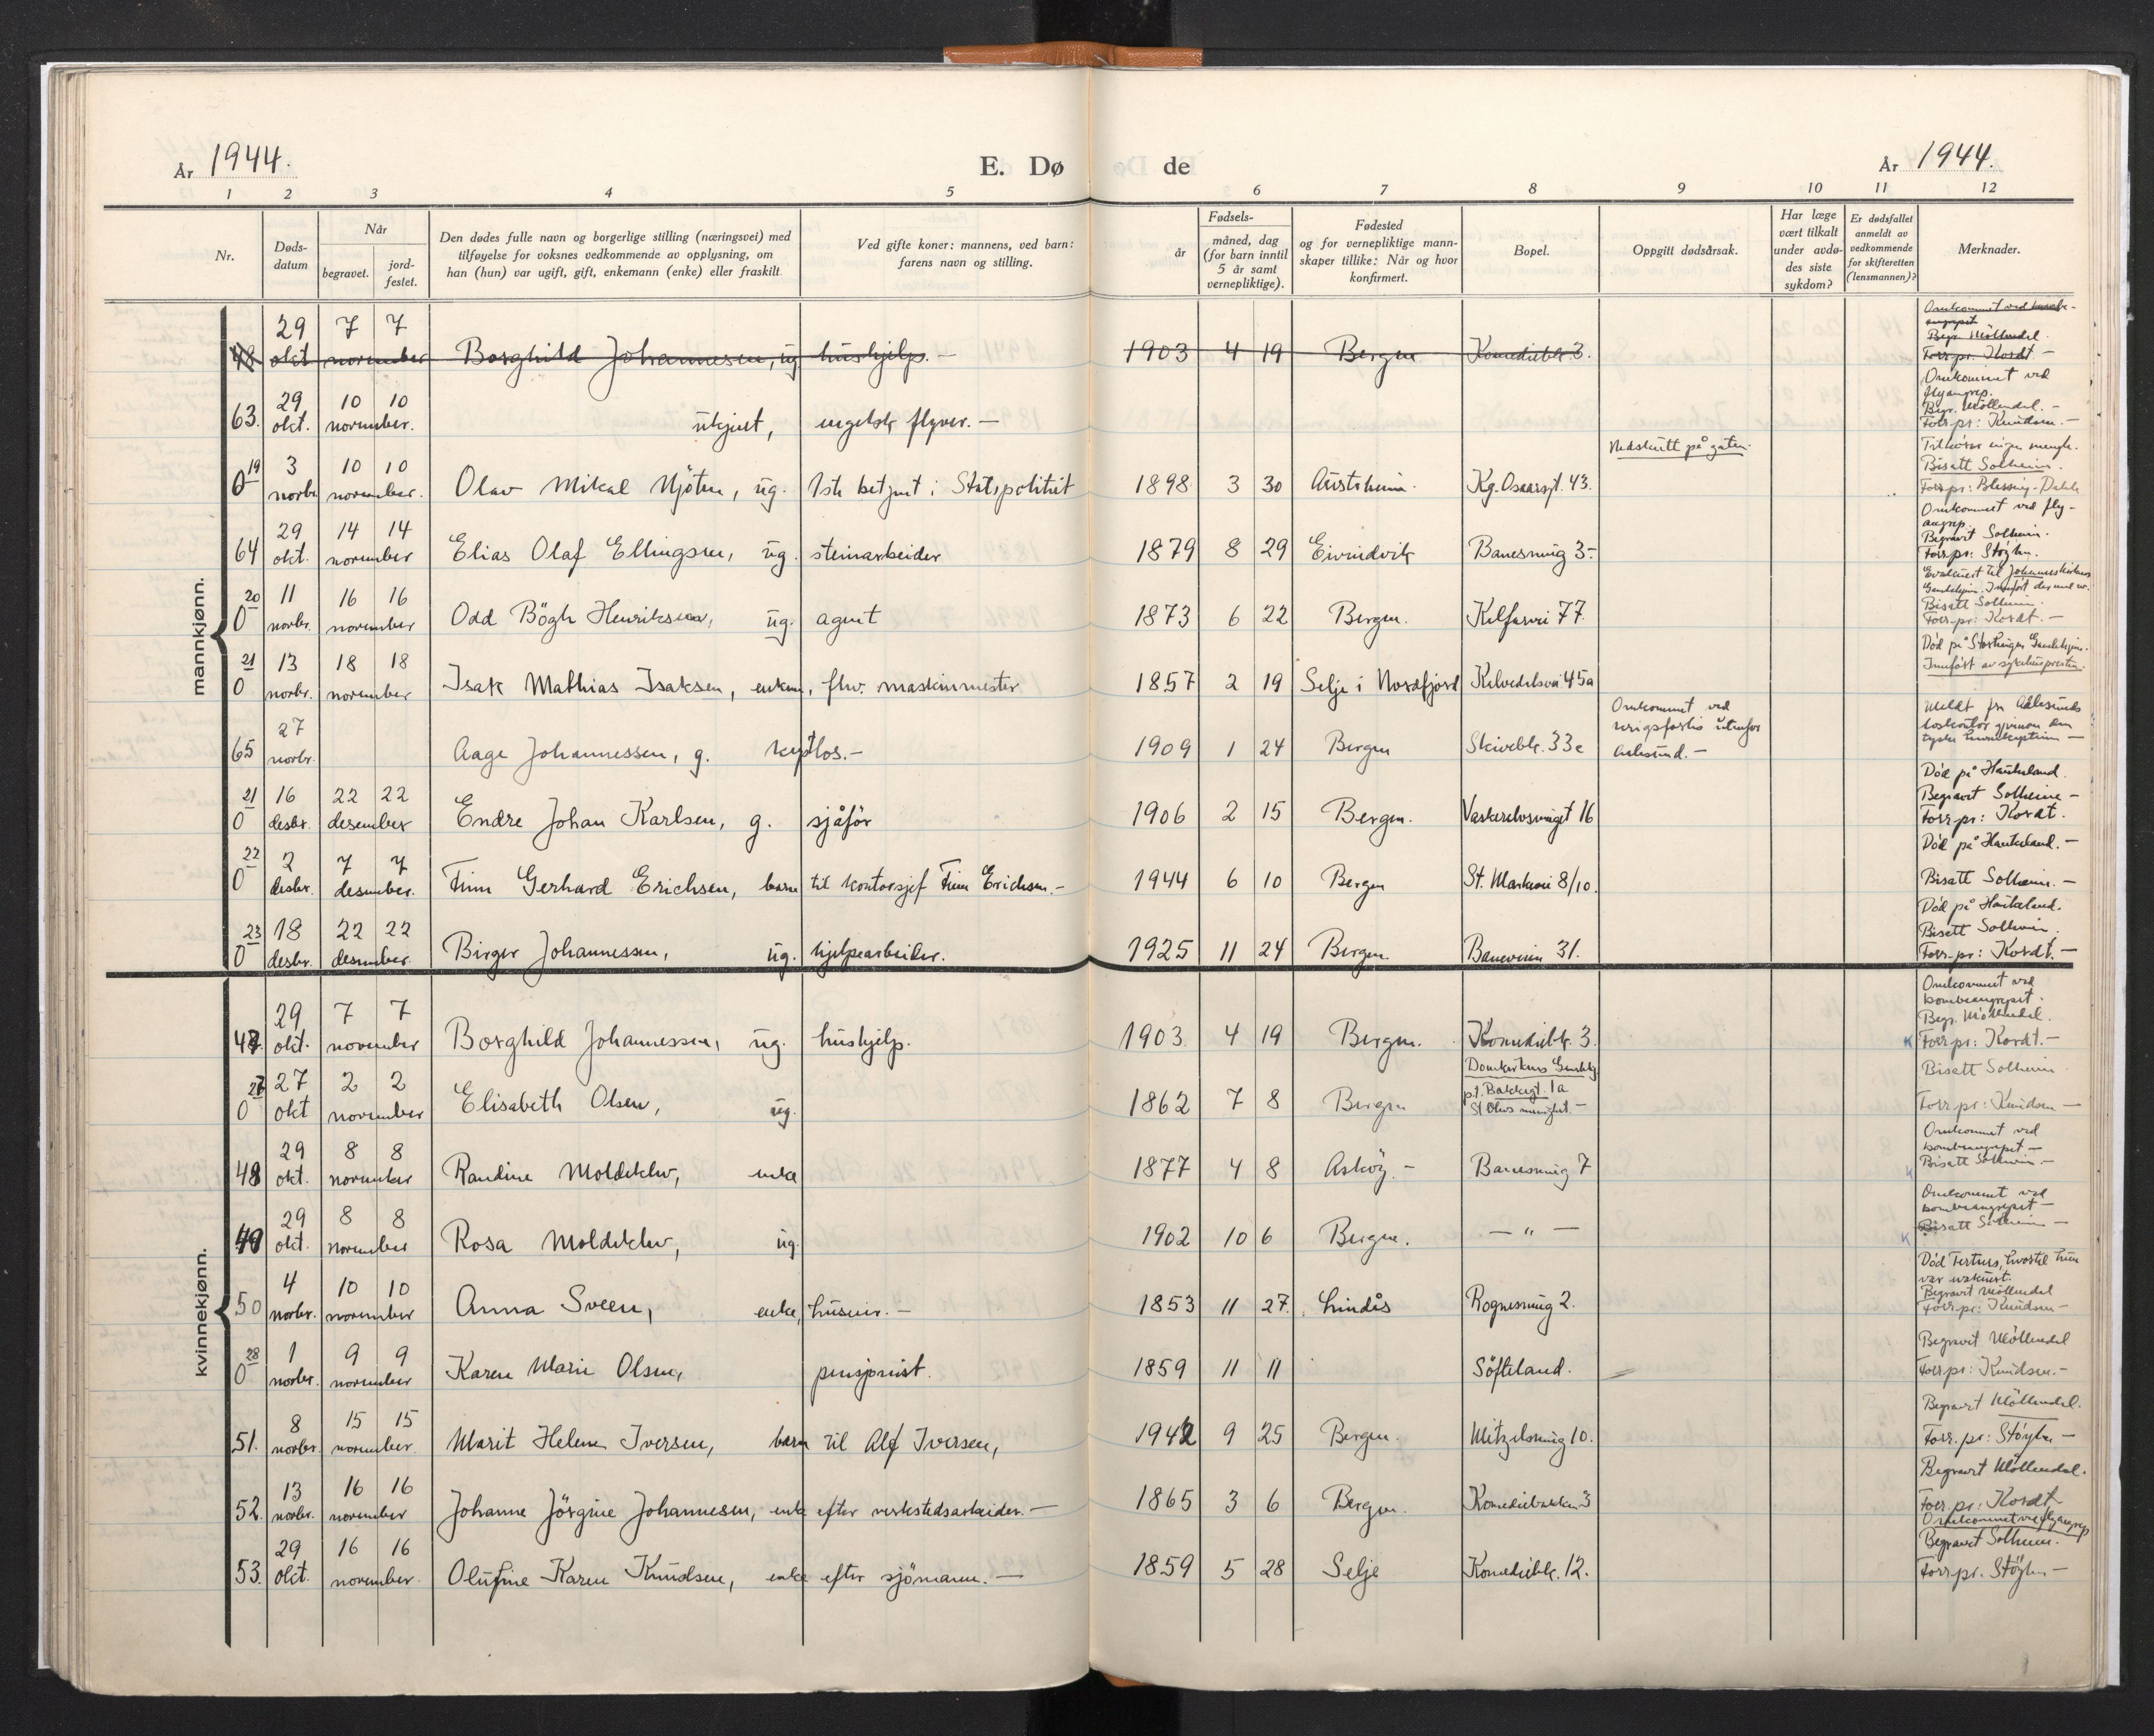 År 1944.
E. Dø de
År 1944.
1 2 3 4 5 6 7 8 9 10 11 12
Nr.
Døds-
datum
Når
begravet.
jord-
festet.
Den dødes fulle navn og borgerlige stilling (næringsvei) med
tilføyelse for voksnes vedkommende av opplysning, om
han (hun) var ugift, gift, enkemann (enke) eller fraskilt.
Ved gifte koner: mannens, ved barn:
farens navn og stilling.
Fødsels-
år
måned, dag
(for barn inntil
5 år samt
vernepliktige).
Fødested
og for vernepliktige mann-
skaper tillike: Når og hvor
konfirmert.
Bopel.
Oppgitt dødsårsak.
Har læge
vært tilkalt
under avdø-
des siste
sykdom?
Er dødsfallet
anmeldt av
vedkommende
for skifteretten
(lensmannen)?
Merknader.
mannkjønn.
29 7 7
48 okt november Borghild Johannesen, ug. hushjelp. — 1903 4 19 Bergen Komediebk. 3.
Omkommet ved
angrepet
Begr. Möllendal.
Forr. pr. Kordt. —
29 10 10
63. okt. november. ukjent, engelsk flyver. —
Omkommet ved
flyangrep.
Begr. Möllendal. —
Forr. pr: Knudsen. —
19 3 10 10
0 novbr. november. Olav Mikal Njöten, ug. 1ste betjent i Statspolitiet 1898 3 30 Austrheim. Kg. Oscarsgt. 43.
Nedskutt på gaten.
Tilhörer ingen menigh.
Bisatt Solheim.
Forr. pr: Blessing-Dahle
29 14 14
64 okt. november Elias Olaf Ellingsen, ug. steinarbeider 1879 8 29 Eivindvik Banesmug 3 -
Omkommet ved fly-
angrep.
Begravet Solheim.
Forr. pr: Stöylen.
20 11 16 16
0 novbr. november Odd Bögh Henriksen, ug. agent 1873 6 22 Bergen. Kalfarvei 77.
Evakuert til Johanneskirkens
Gamlehjem. Innfört der med nr.
Bisatt Solheim.
Forr. pr: Kordt. —
21 13 18 18
0 novbr. november Isak Mathias Isaksen, enkem., fhv. maskinmester 1857 2 19 Selje i Nordfjord Kalvedalsvei 45a
Död på Gamlehjem.
Innfört av sykehuspresten.
27
65 novbr. Aage Johannessen, g. kystlos. — 1909 1 24 Bergen Skivebk. 33c
Omkommet ved
krigsforlis utenfor
Aalesund. —
Meldt fra Aalesunds
loskontor gjennom den
tyske
21 16 22 22
0 desbr. desember Endre Johan Karlsen, g. sjåför 1906 2 15 Bergen. Vaskerelvsmuget 16
Död på Haukeland.
Begravet Solheim —
Forr. pr: Kordt.
22 2 7 7
0 desbr. desember. Finn Gerhard Erichsen, barn til kontorsjef Finn Erichsen. — 1944 6 10 Bergen St. Markevei 8/10.
Död på Haukeland. —
Bisatt Solheim. —
23 18 22 22
0 desbr. desember. Birger Johannessen, ug. hjelpearbeider. 1925 11 24 Bergen. Baneveien 31.
Död på Haukeland.
Bisett Solheim.
Forr. pr: Kordt. —
kvinnekjønn.
29 7 7
47. okt. november Borghild Johannessen, ug. hushjelp. 1903. 4 19 Bergen. Komediebk. 3.
Omkommet ved
bombeangrepet.
Begr. Möllendal.
K Forr. pr: Kordt. —
27 27 2 2
0 okt november Elisabeth Olsen, ug. 1862 7 8 Bergen
Domkirkens Gamlehj.
p.t. Bakkegt. 1a
St Olavs menighet. —
Bisatt Solheim
Forr. pr: Knudsen —
29 8 8
48 okt. november Randine Moldeklev, enke 1877 4 8 Asköy. — Banesmug 7
Omkommet ved
bombeangrepet —
K Bisatt Solheim. —
29 8 8
49 okt. november Rosa Moldeklev, ug. 1902 10 6 Bergen. — " —
Omkommet ved
bombeangrepet —
K Bisatt Solheim —
4 10 10
50 novbr. november Anna Sveen, enke, huseier. — 1853 11 27. Lindås Rognesmug 2.
Död Tertnes, hvortil hun
var evakuert.
Begravet Möllendal
Forr. pr: Knudsen —
28 1 9 9
0 novbr. november Karen Marie Olsen, pensjonist. 1859 11 11 Söfteland.
Begravet Möllendal
Forr. pr: Knudsen. —
8 15 15
51. novbr. november Marit Helene Iversen, barn til Alf Iversen, 1942 9 25 Bergen. Mitzelsmug 10.
Begravet Möllendal.
Forr. pr: Stöylen —
13 16 16
52. novbr. november Johanne Jörgine Johannesen, enke efter verkstedsarbeider. — 1865 3 6 Bergen. Komediebakken 3
Begravet Möllendal.
Forr. pr: Kordt
29 16 16
53. okt. november. Olufine Karen Knudsen, enke efter sjömann. — 1859 5 28 Selje Komediebk. 12.
Omkommet ved flyangrep
Begravet Solheim.
Forr. pr. Stöylen —